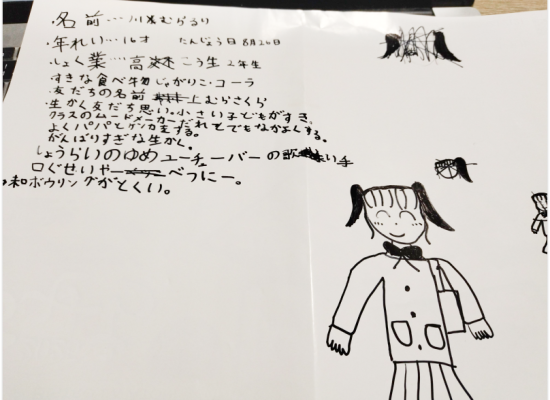 ・名前…川〆むらるり
・年れい…16才 たんじょう日8月26日
・しょく業…高こう生2年生
・すきな食べ物じゃがりこ・コーラ
・友だちの名前 上むらさくら
・生かく友だち思い。小さい子どもがすき。
クラスのムードメーカーだれとでもなかよくする。
よくパパとゲンカをする。
がんばりすぎな生かく。
しょうらいのゆめユーチューバーの歌い手
口ぐせいやーべつにー。
・和ボウリングがとくい。